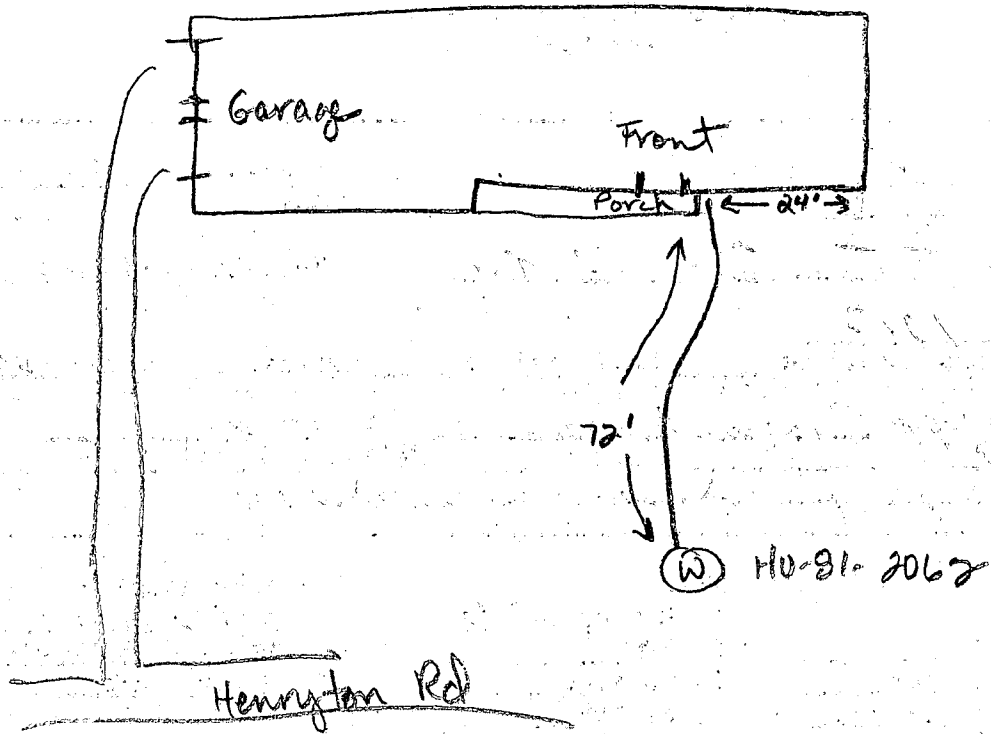 Garage
Front
Porch
24'
72'
W HO-81-2062
Henryton Rd